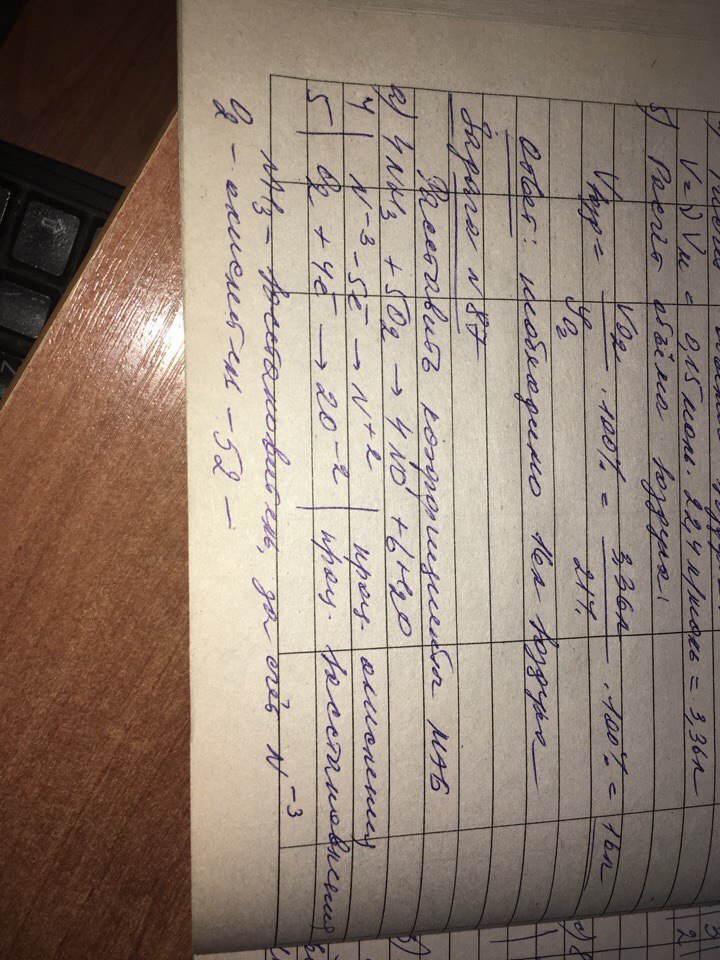 V = νVм = 0,15моль · 22,4 л/моль = 3,36л
5) Расчёт объёма воздуха:
Vвозд = VO2 / φO2 · 100% = 3,36л / 21% · 100% = 16л
Ответ: необходимо 16л воздуха
Задача №87
Расставить коэффициенты МЭБ
а) 4NH3 + 5O2 → 4NO + 6H2O
4 | N-3 - 5ē → N+2 | проц. окисления
5 | O2 + 4ē → 2O-2 | проц. восстановления
NH3 - восстановитель, за счёт N-3
O2 - окислитель